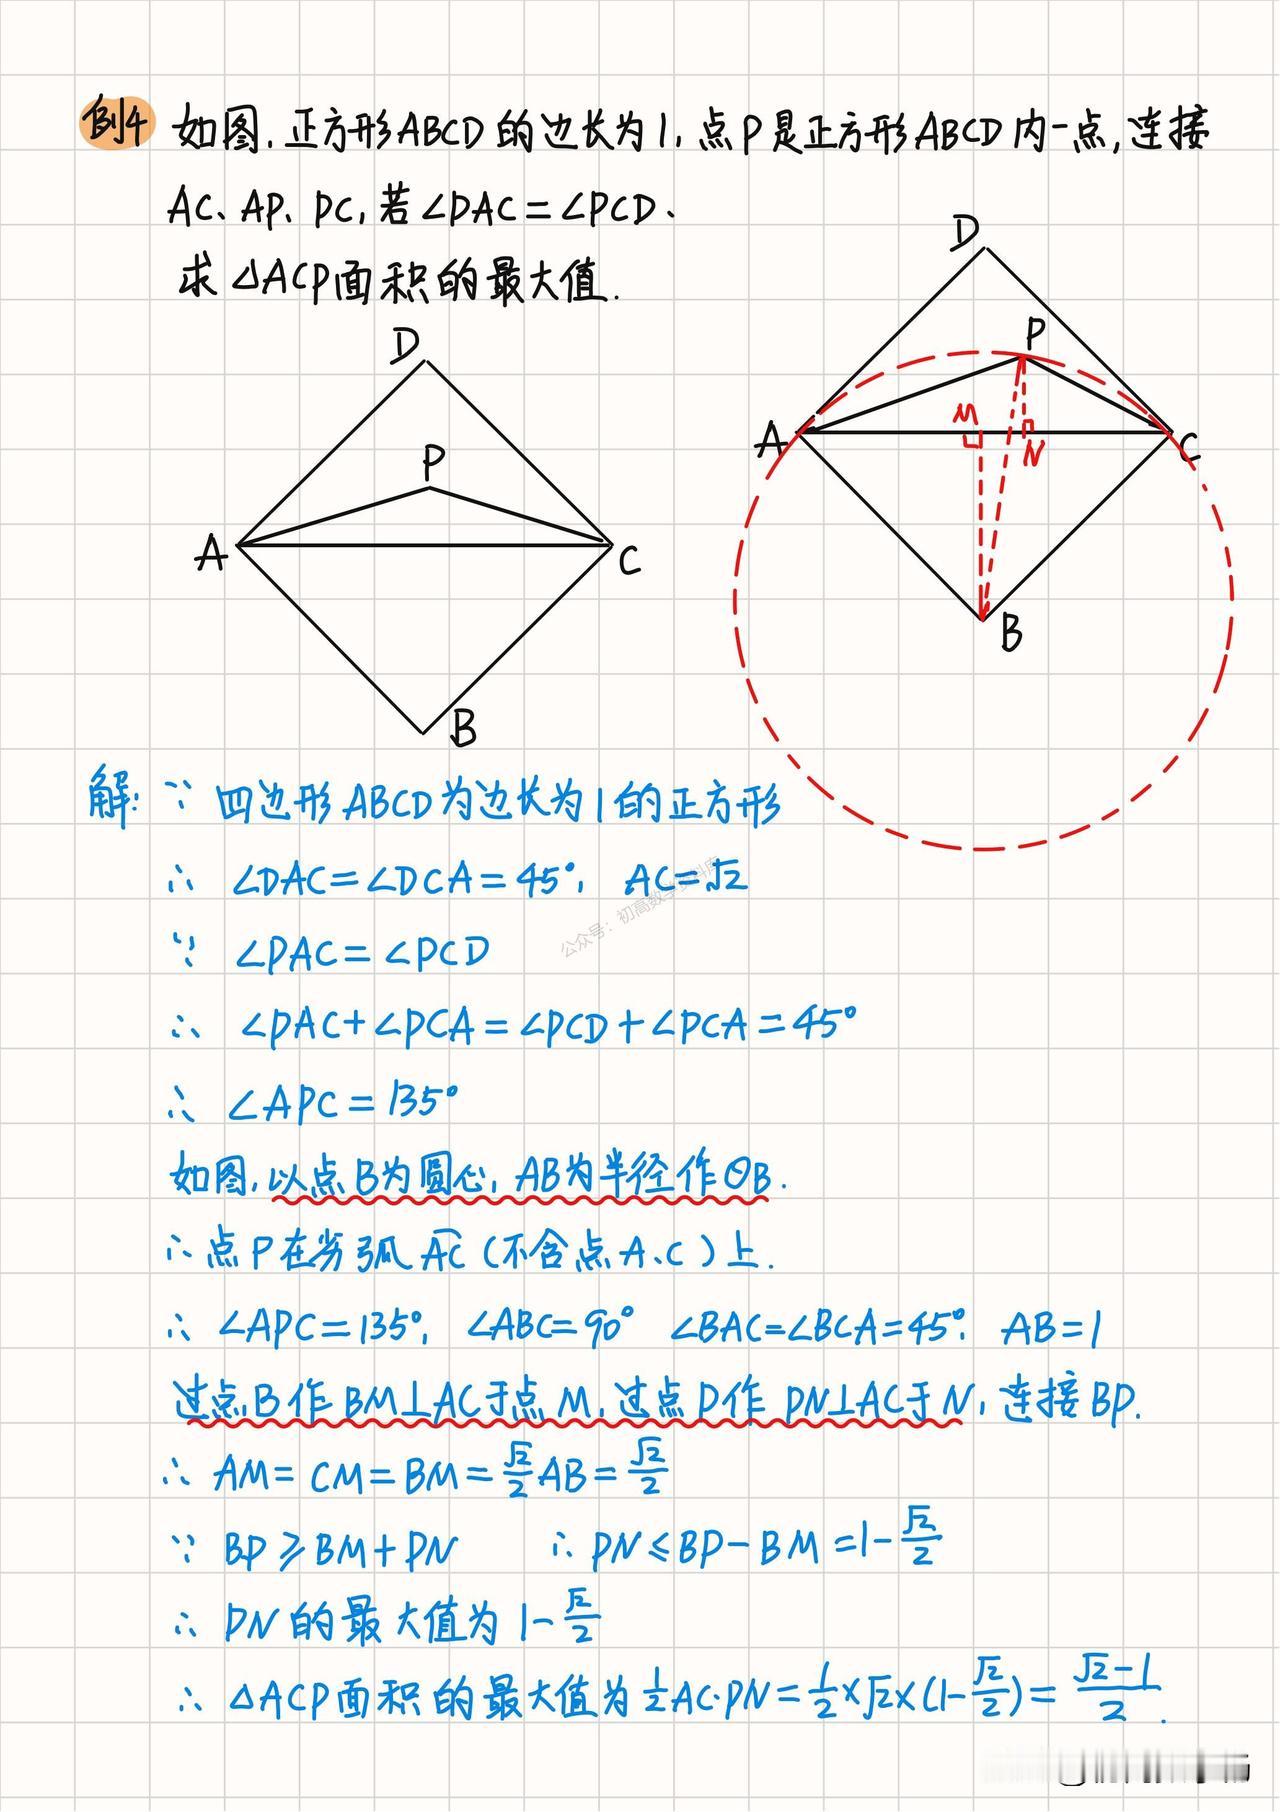 例4 如图,正方形ABCD的边长为1,点P是正方形ABCD内一点,连接
AC、AP、PC,若∠PAC=∠PCD、
求△ACP面积的最大值.
D
P
A
C
B
D
P
A
M
N
C
B
解: ∵ 四边形ABCD为边长为1的正方形
∴ ∠DAC=∠DCA=45°, AC=√2
∵ ∠PAC=∠PCD
∴ ∠PAC+∠PCA=∠PCD+∠PCA=45°
∴ ∠APC=135°
如图,以点B为圆心,AB为半径作⊙B.
∴点P在劣弧AC(不含点A、C)上.
∴ ∠APC=135°, ∠ABC=90° ∠BAC=∠BCA=45°, AB=1
过点B作BM⊥AC于点M,过点P作PN⊥AC于N,连接BP.
∴ AM=CM=BM=√2/2AB=√2/2
∵ BP≥BM+PN ∴PN≤BP-BM=1-√2/2
∴ PN的最大值为1-√2/2
∴ △ACP面积的最大值为1/2AC·PN=1/2×√2×(1-√2/2)=(√2-1)/2.
公众号:初高数学资料库